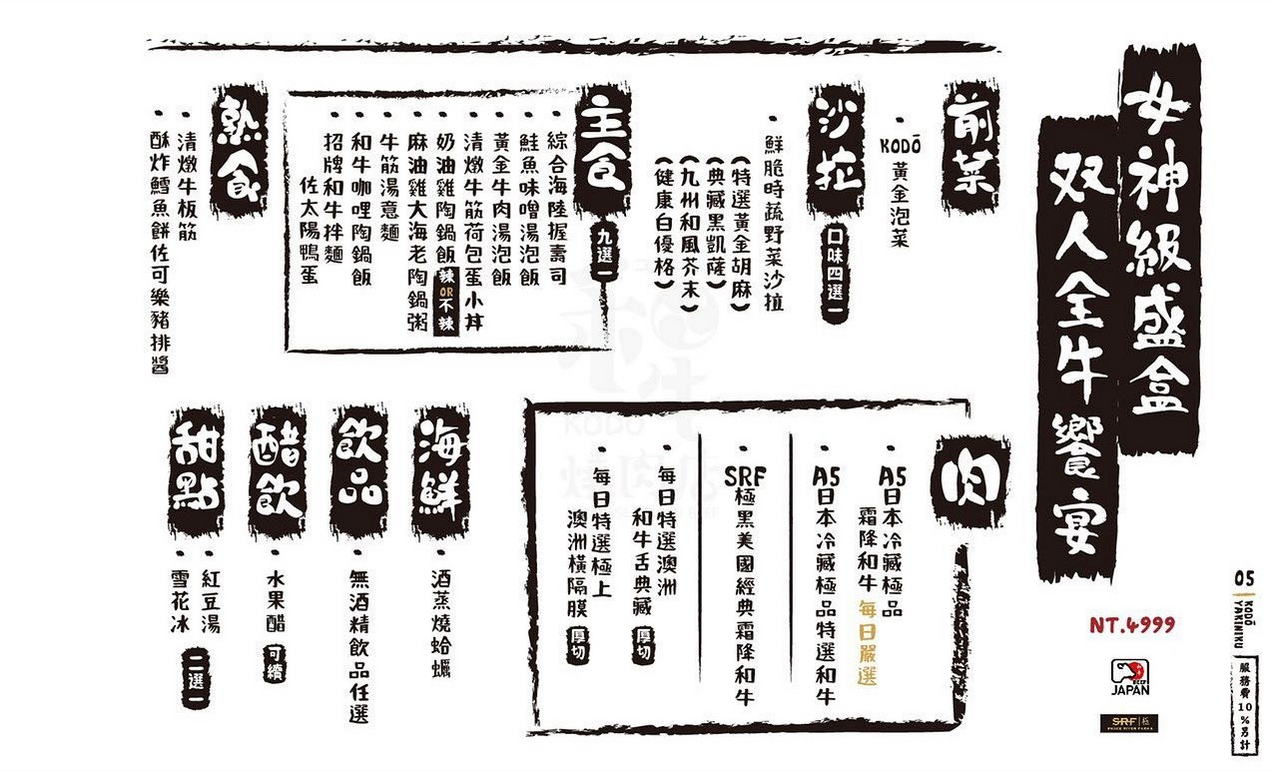 女神級盛盒
双人全牛饗宴
NT.4999
BEEF
JAPAN
SRF極
前菜
KODŌ黃金泡菜
沙拉
口味四選一
鮮脆時蔬野菜沙拉
(特選黃金胡麻)
(典藏黑凱薩)
(九州和風芥末)
(健康白優格)
主食
九選一
綜合海陸握壽司
鮭魚味噌湯泡飯
黃金牛肉湯泡飯
清燉牛筋荷包蛋小丼
奶油雞陶鍋飯 辣OR不辣
麻油雞大海老陶鍋粥
牛筋湯意麵
和牛咖哩陶鍋飯
招牌和牛拌麵
佐太陽鴨蛋
熟食
清燉牛板筋
酥炸鱈魚餅佐可樂豬排醬
肉
A5日本冷藏極品
霜降和牛 每日嚴選
A5日本冷藏極品特選和牛
SRF極黑美國經典霜降和牛
每日特選澳洲
和牛舌典藏 厚切
每日特選極上
澳洲橫隔膜 厚切
海鮮
酒蒸燒蛤蠣
飲品
無酒精飲品任選
醋飲
水果醋 可續
甜點
紅豆湯
雪花冰
二選一
05
KODŌ YAKINIKU
服務費10%另計